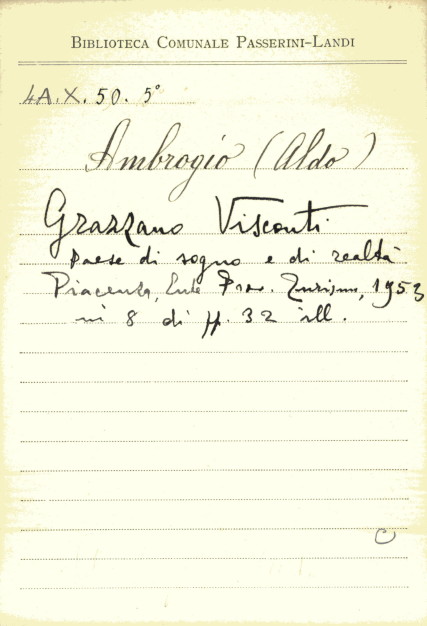 BIBLIOTECA COMUNALE PASSERINI-LANDI
4A.X.50.5°
Ambrogio (Aldo)
Grazzano Visconti
Paese di sogno e di realtà
Piacenza, Ente Prov. Turismo, 1953
in 8 di pp. 32 ill.
C